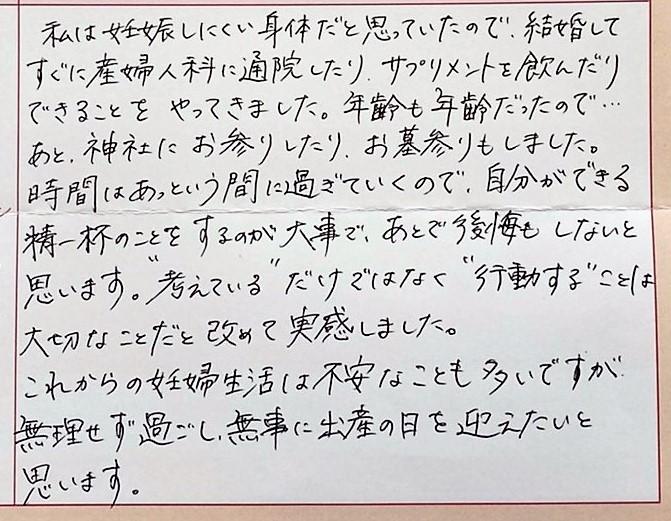 私は妊娠しにくい身体だと思っていたので、結婚して
すぐに産婦人科に通院したり、サプリメントを飲んだり
できることを やってきました。年齢も年齢だったので…
あと、神社に お参りしたり、お墓参りもしました。
時間はあっという間に過ぎていくので、自分ができる
精一杯のことをするのが大事で、あとで後悔もしないと
思います。"考えている"だけではなく"行動する"ことは
大切なことだと改めて実感しました。
これからの妊婦生活は不安なことも多いですが
無理せず過ごし、無事に出産の日を迎えたいと
思います。